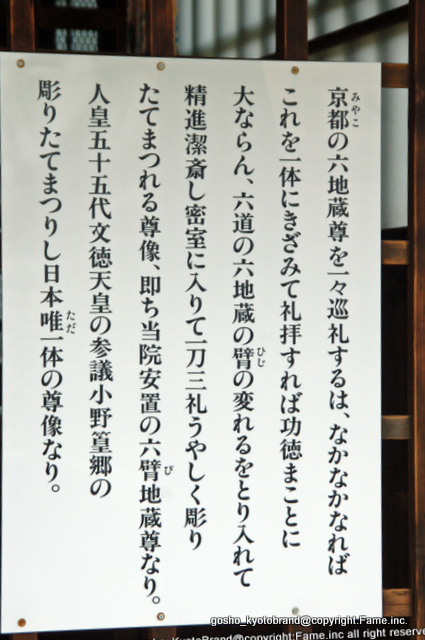 京都の六地蔵尊を一々巡礼するは、なかなかなれば
みやこ
これを一体にきざみて礼拝すれば功徳まことに
大ならん、六道の六地蔵の臂の変れるをとり入れて
ひじ
精進潔斎し密室に入りて一刀三礼うやしく彫り
たてまつれる尊像、即ち当院安置の六臂地蔵尊なり。
び
人皇五十五代文徳天皇の参議小野篁郷の
彫りたてまつりし日本唯一体の尊像なり。
ただ
gosho_kyotobrand@copyright:Fame.inc.
KyotoBrand@copyright:Fame.inc all right reser